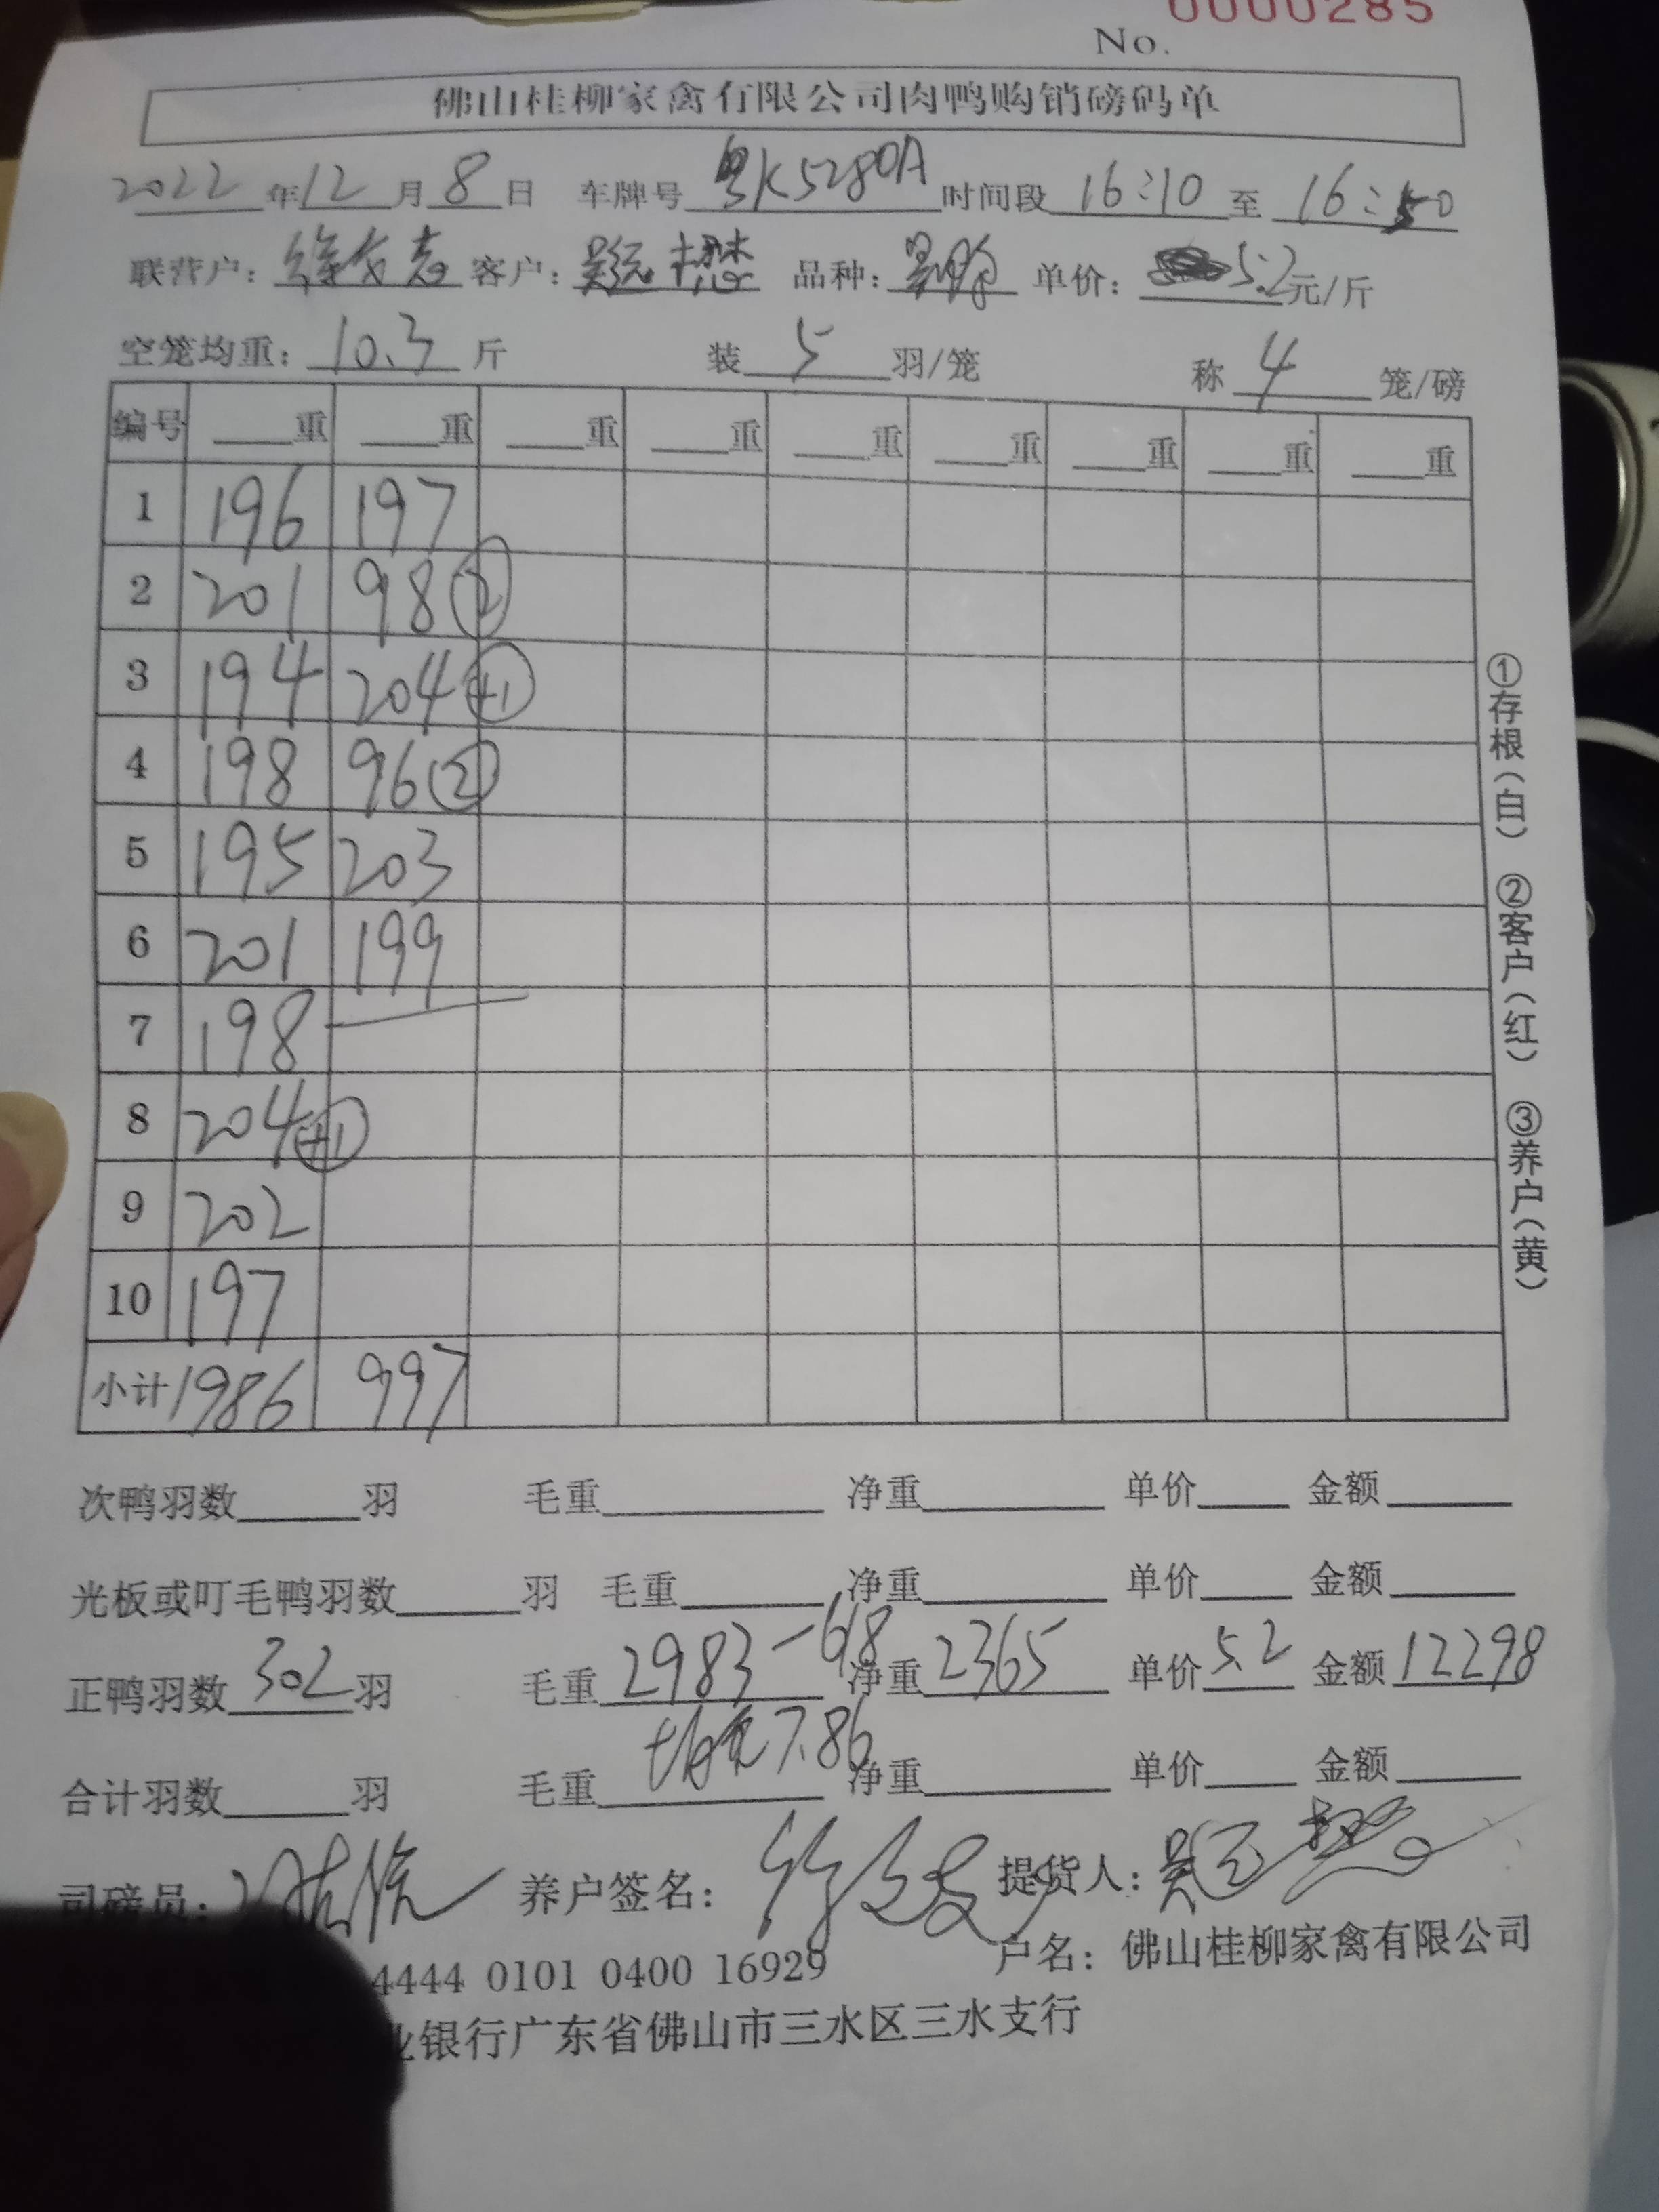 0000285
No.
佛山桂柳家禽有限公司肉鸭购销磅码单
2022年12月8日 车牌号粤K5280A时间段16:10至16:50
联营户: 客户: 品种: 单价: 5.2元/斤
空笼均重: 10.3斤 装5羽/笼 称4笼/磅
编号 重 重 重 重 重 重 重 重 重
1 196 197
2 201 98②
3 194 204(+1)
4 198 96②
5 195 203
6 201 199
7 198
8 204(+1)
9 202
10 197
小计 1986 997
①存根(白) ②客户(红) ③养户(黄)
次鸭羽数 羽 毛重 净重 单价 金额
光板或叮毛鸭羽数 羽 毛重 净重 单价 金额
正鸭羽数302羽 毛重2983-618 净重2365 单价5.2 金额12298
均重7.86
合计羽数 羽 毛重 净重 单价 金额
司磅员: 养户签名: 提货人:
4444 0101 0400 16929 户名: 佛山桂柳家禽有限公司
业银行广东省佛山市三水区三水支行